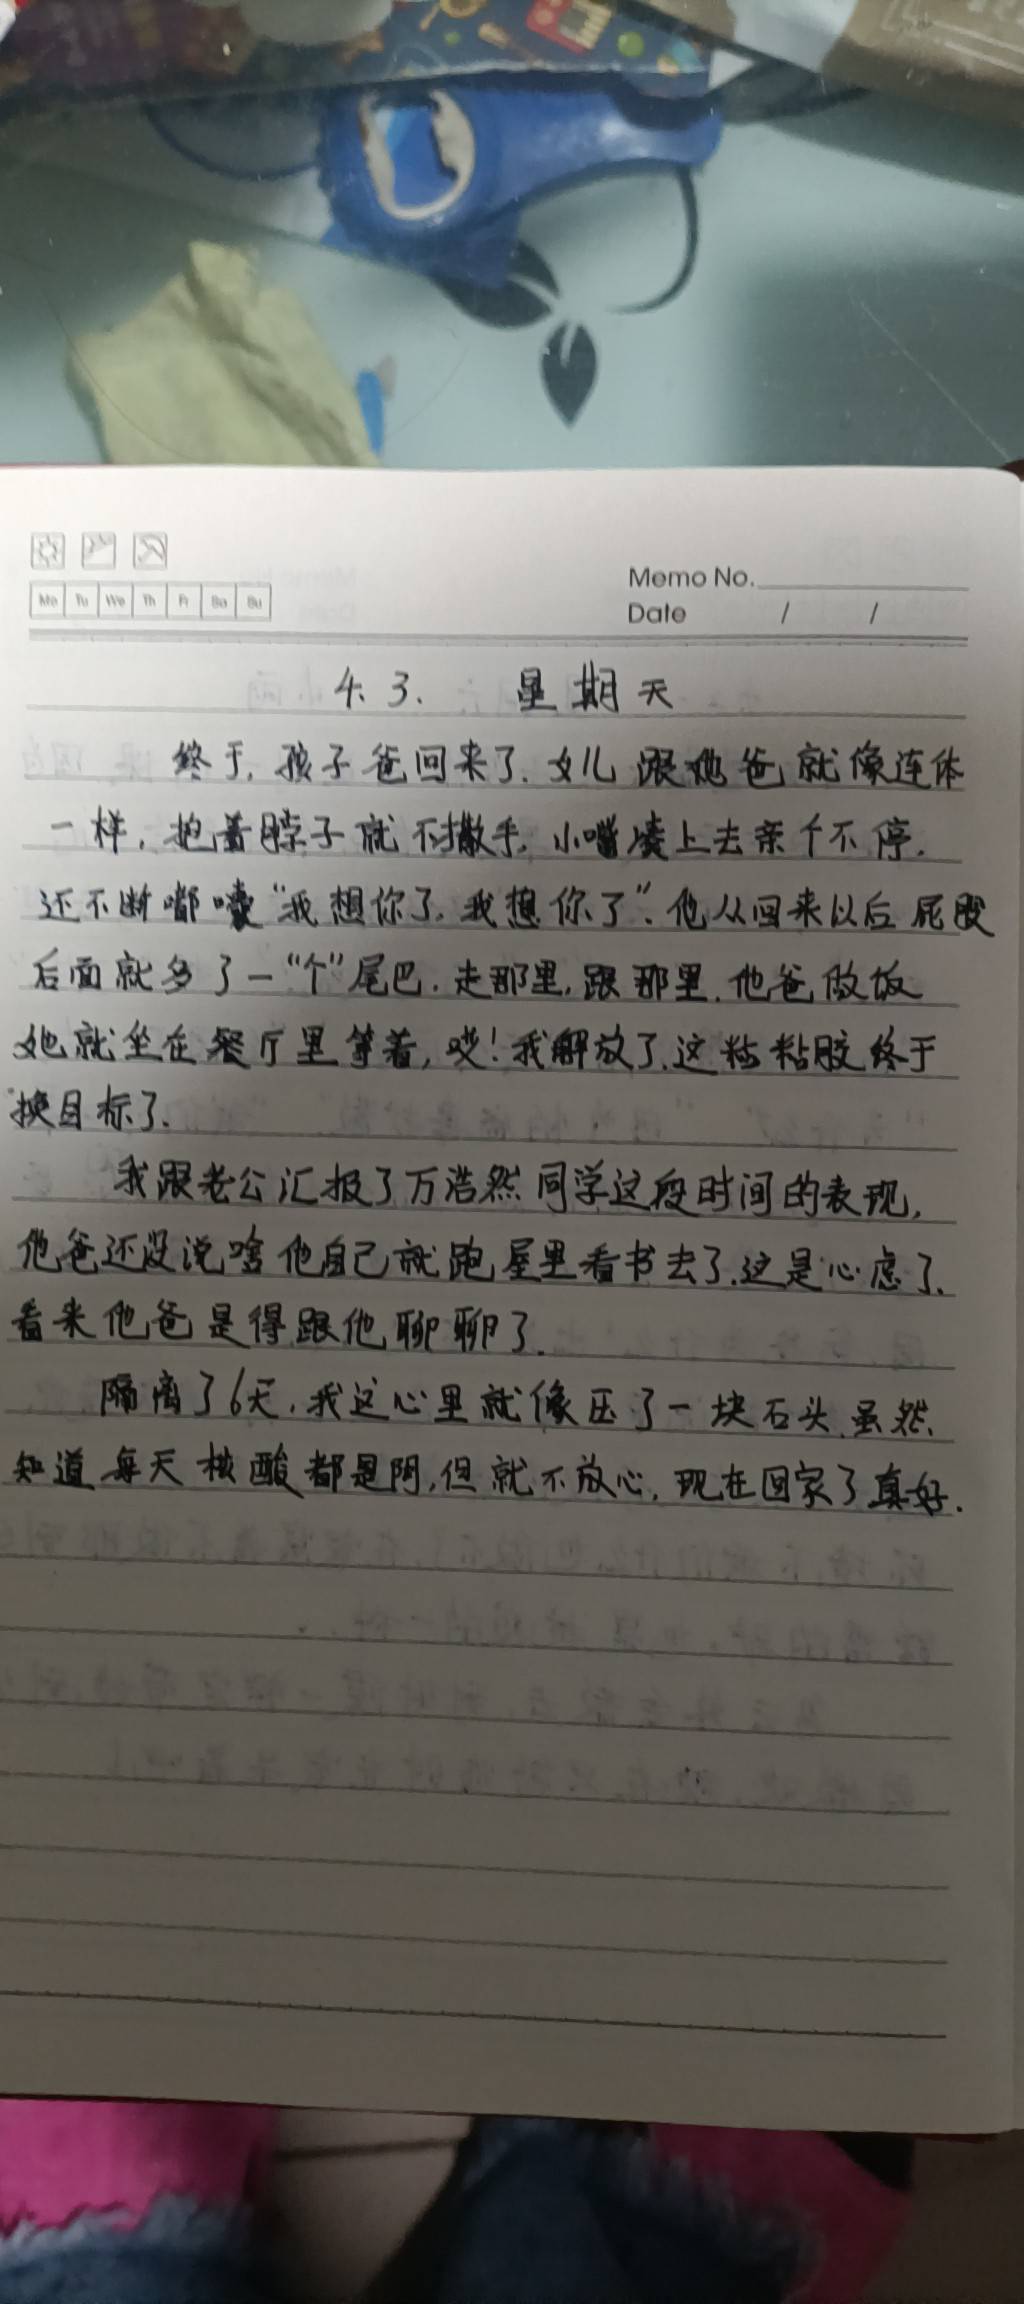 Memo No.
Mo Tu We Th Fr Sa Su
Date / /
4.3. 星期天
终于,孩子爸回来了.女儿跟她爸就像连体
一样,抱着脖子就不撒手,小嘴凑上去亲个不停.
还不断嘟囔“我想你了,我想你了”.他从回来以后屁股
后面就多了一“个”尾巴.走那里,跟那里.他爸做饭
她就坐在餐厅里等着,哎!我解放了.这粘粘胶终于
换目标了.
我跟老公汇报了万浩然同学这段时间的表现,
他爸还没说啥他自己就跑屋里看书去了.这是心虑了.
看来他爸是得跟他聊聊了.
隔离了6天,我这心里就像压了一块石头.虽然
知道每天核酸都是阴,但就不放心,现在回家了真好.